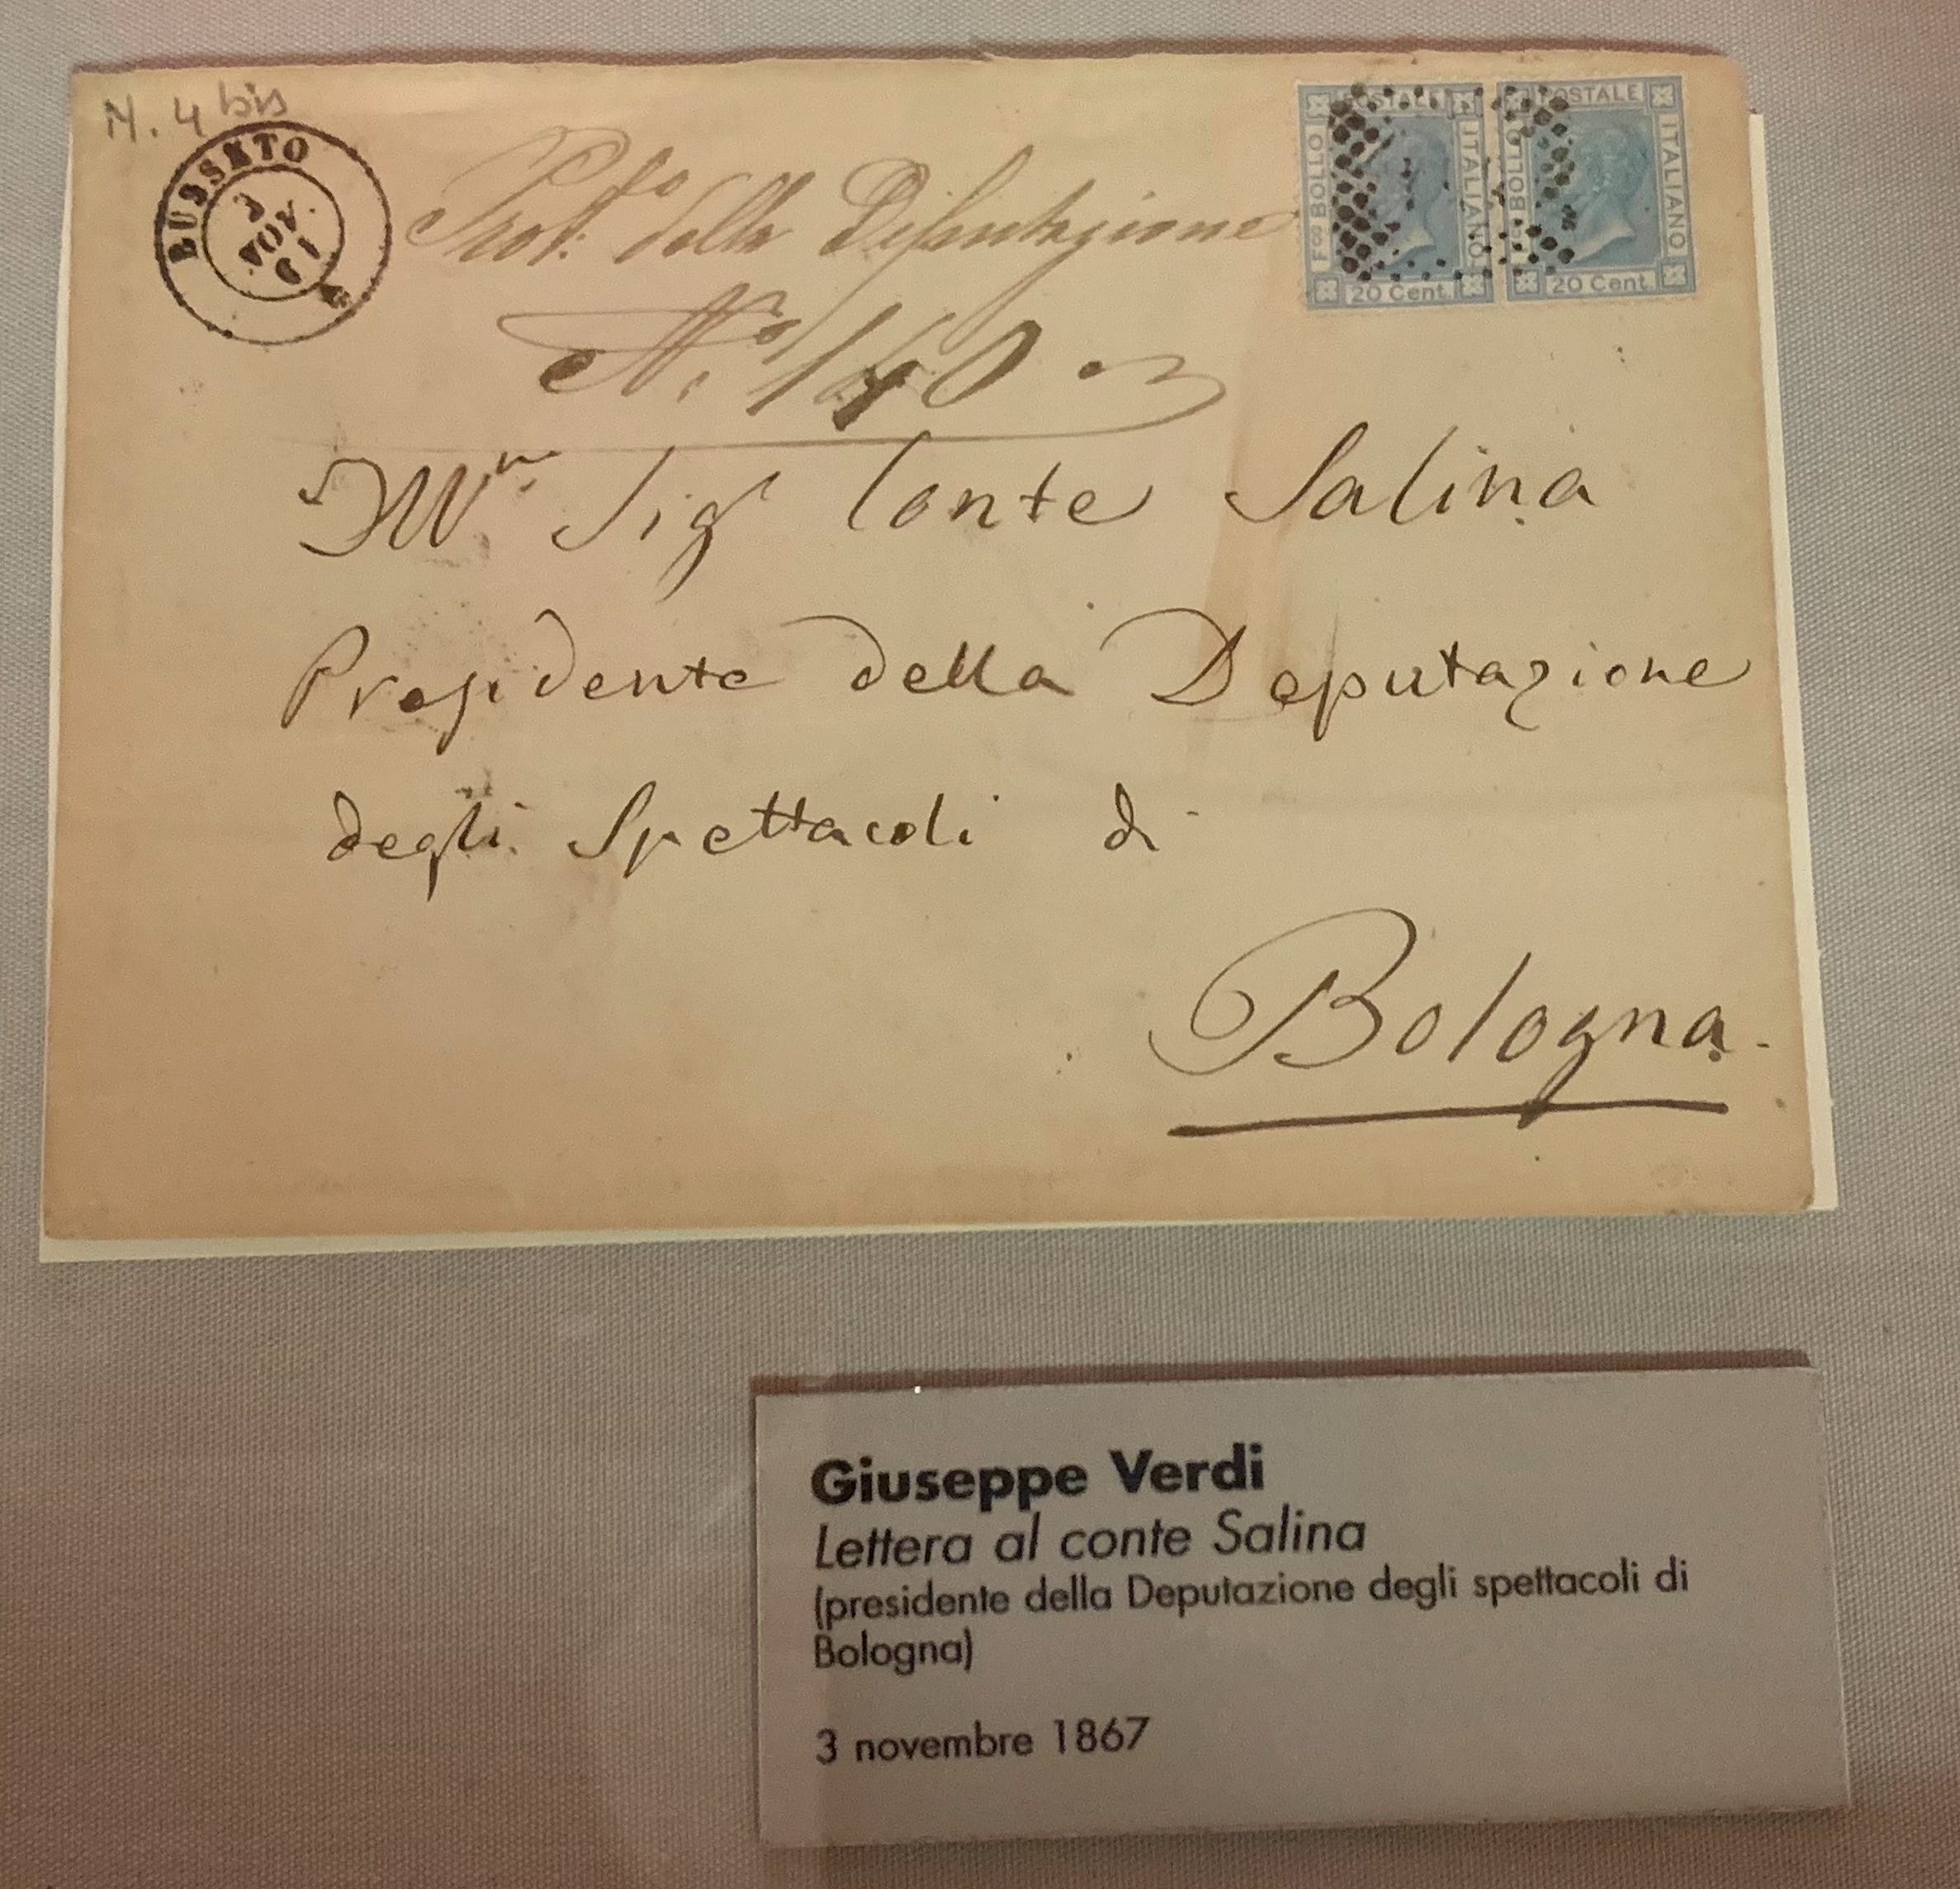 N. 4 bis
BUSSETO
Prot. della Deputazione
N.º 140
Illᵐ Sigʳ Conte Salina
Presidente della Deputazione
degli Spettacoli di
Bologna.
POSTALE
FCO BOLLO
ITALIANO
20 Cent.
POSTALE
BOLLO
ITALIANO
20 Cent.
Giuseppe Verdi
Lettera al conte Salina
(presidente della Deputazione degli spettacoli di
Bologna)
3 novembre 1867